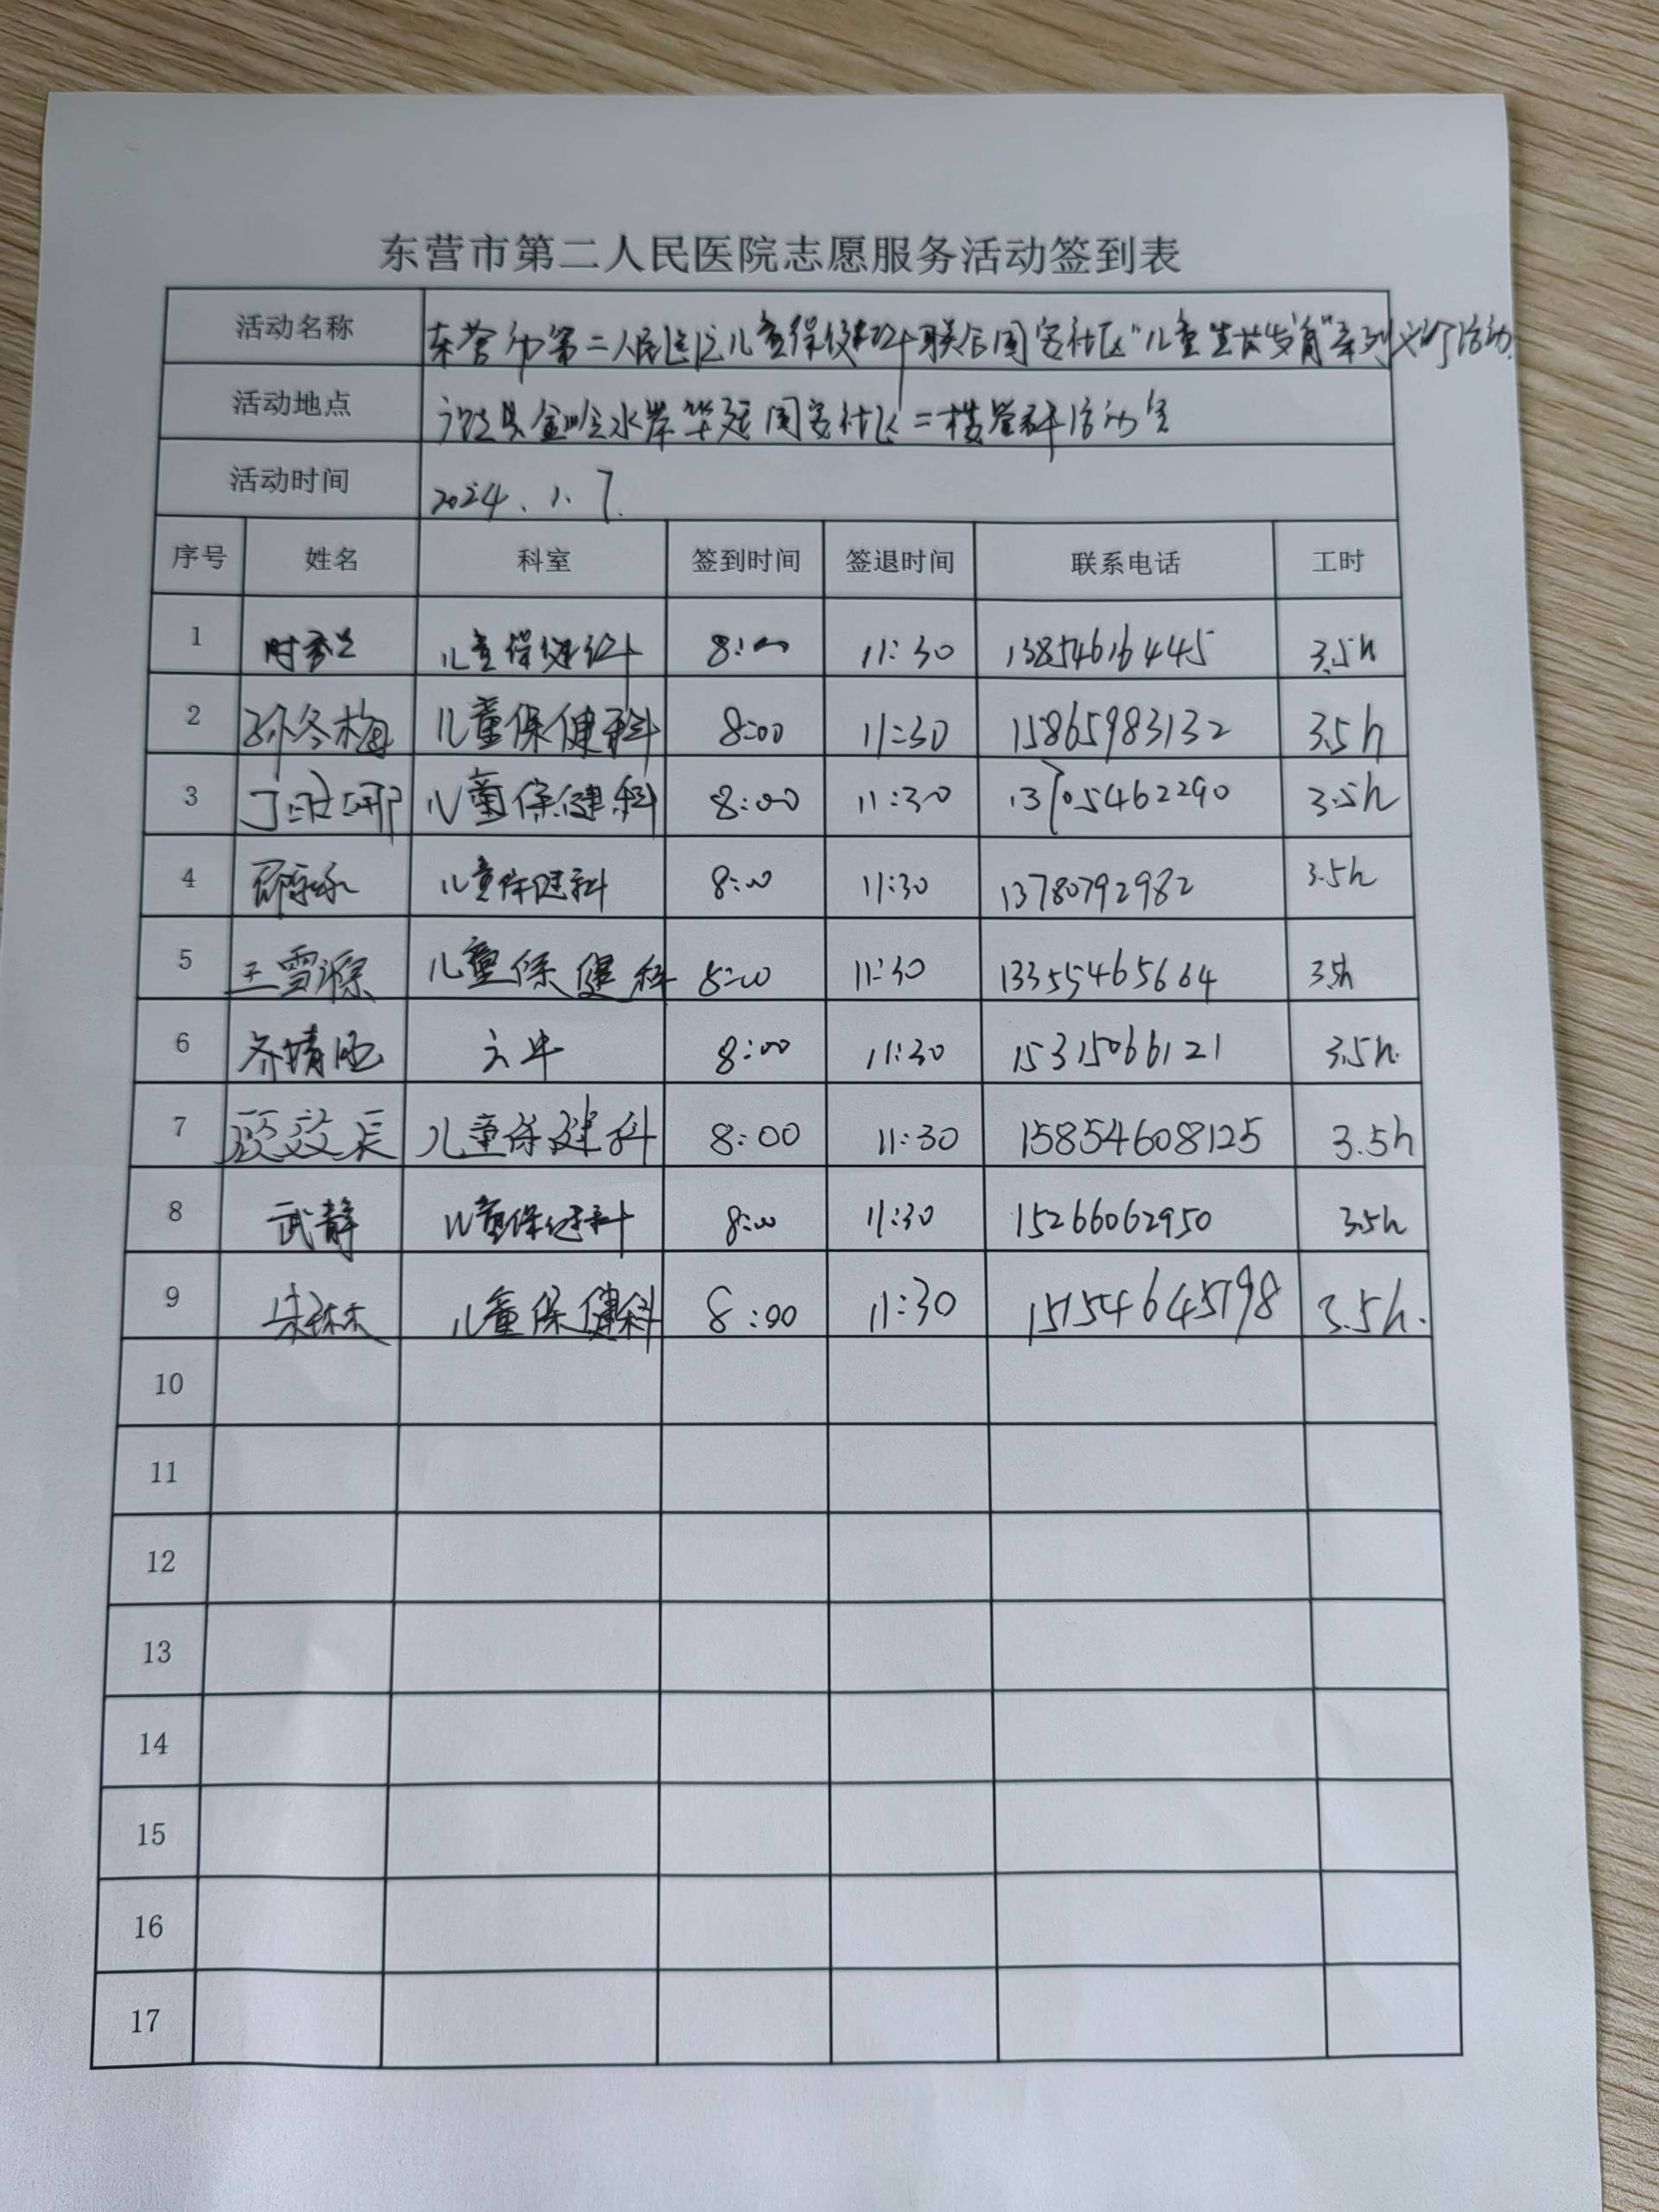 东营市第二人民医院志愿服务活动签到表
活动名称 东营市第二人民医院儿童保健科联合周家社区"儿童生长发育"系列义诊活动
活动地点 金岭水岸华庭周家社区二楼 活动室
活动时间 2024.1.7.
序号 姓名 科室 签到时间 签退时间 联系电话 工时
1 时 儿童保健科 8:00 11:30 13854616445 3.5h
2 孙冬梅 儿童保健科 8:00 11:30 15865983132 3.5h
3 丁 娜 儿童保健科 8:00 11:30 13705462290 3.5h
4 儿童保健科 8:00 11:30 13780792982 3.5h
5 王雪源 儿童保健科 8:00 11:30 13355465664 3.5h
6 齐靖 8:00 11:30 15315066121 3.5h.
7 效 儿童保健科 8:00 11:30 15854608125 3.5h
8 武静 儿童保健科 8:00 11:30 15266062950 3.5h
9 儿童保健科 8:00 11:30 15154645198 3.5h.
10
11
12
13
14
15
16
17